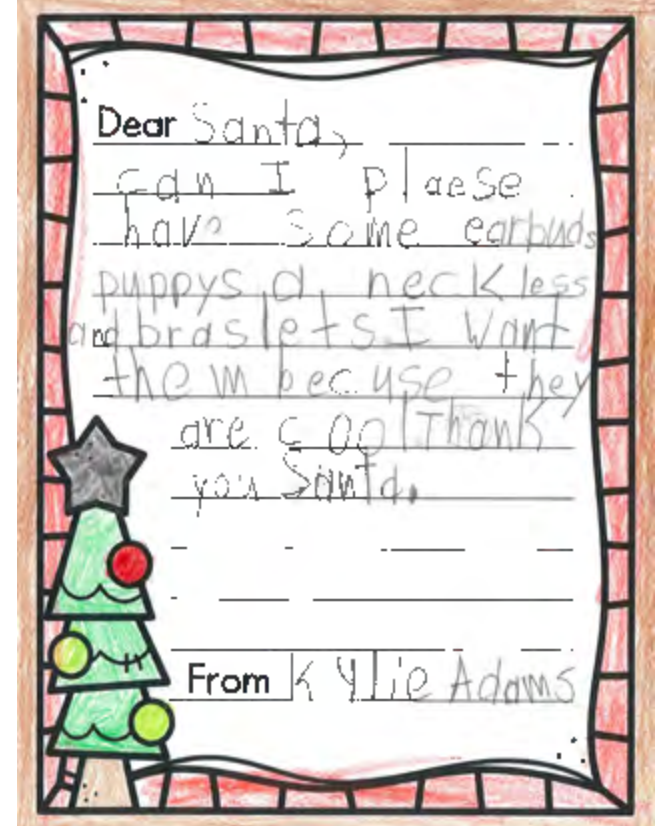 Dear Santa,
can I plaese
have some earbuds
puppys, a, neckless
and braslets I want
them becuse they
are cool Thank
you Santa.
From Kylie Adams